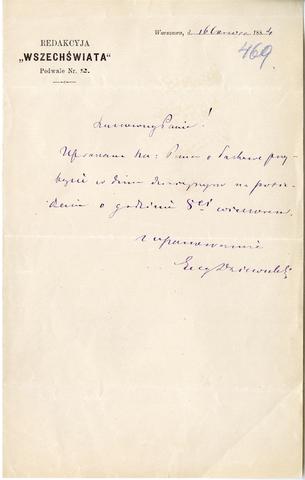 REDAKCYJA
„WSZECHŚWIATA"
Podwale Nr. 2.
Warszawa, d. 16 Czerwca 1884
469.
Szanowny Panie!
Upraszam Sza: Pana o łaskawe przy-
bycie w dniu dzisiejszym na posie-
dzenie o godzinie 8ej wieczorem.
z uszanowaniem
Eug Dziewulski